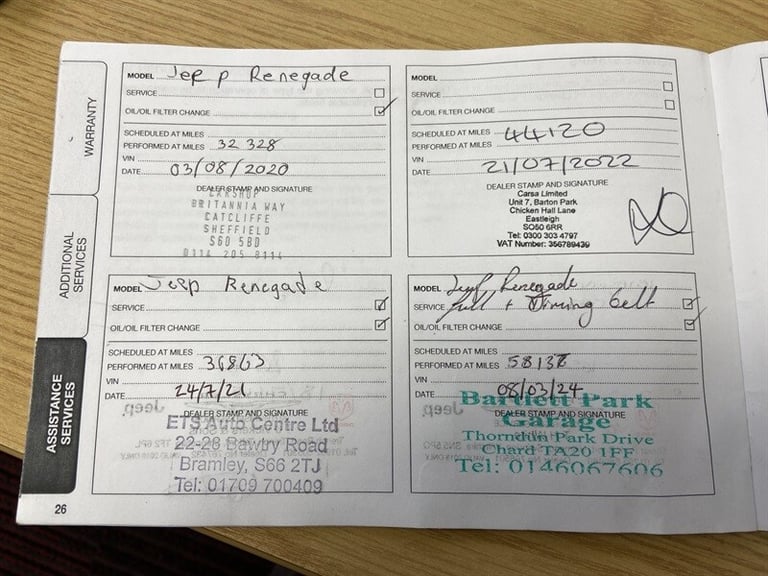 WARRANTY
ADDITIONAL
SERVICES
ASSISTANCE
SERVICES
26
MODEL Jeep Renegade
SERVICE
OIL/OIL FILTER CHANGE
SCHEDULED AT MILES
PERFORMED AT MILES 32 328
VIN
DATE 03/08/2020
DEALER STAMP AND SIGNATURE
CARSHOP
BRITANNIA WAY
CATCLIFFE
SHEFFIELD
S60 5BD
0114 205 8114
MODEL
SERVICE
OIL/OIL FILTER CHANGE
SCHEDULED AT MILES
PERFORMED AT MILES 44120
VIN
DATE 21/07/2022
DEALER STAMP AND SIGNATURE
Carsa Limited
Unit 7, Barton Park
Chicken Hall Lane
Eastleigh
SO50 6RR
Tel: 0300 303 4797
VAT Number: 356789439
MODEL Jeep Renegade
SERVICE
OIL/OIL FILTER CHANGE
SCHEDULED AT MILES
PERFORMED AT MILES 36863
VIN
DATE 24/7/21
DEALER STAMP AND SIGNATURE
ETS Auto Centre Ltd
22-28 Bawtry Road
Bramley, S66 2TJ
Tel: 01709 700409
MODEL Jeep Renegade
SERVICE full + Timing belt
OIL/OIL FILTER CHANGE
SCHEDULED AT MILES
PERFORMED AT MILES 58138
VIN
DATE 08/03/24
DEALER STAMP AND SIGNATURE
Bartlett Park
Garage
Thorndun Park Drive
Chard TA20 1FF
Tel: 0146067606